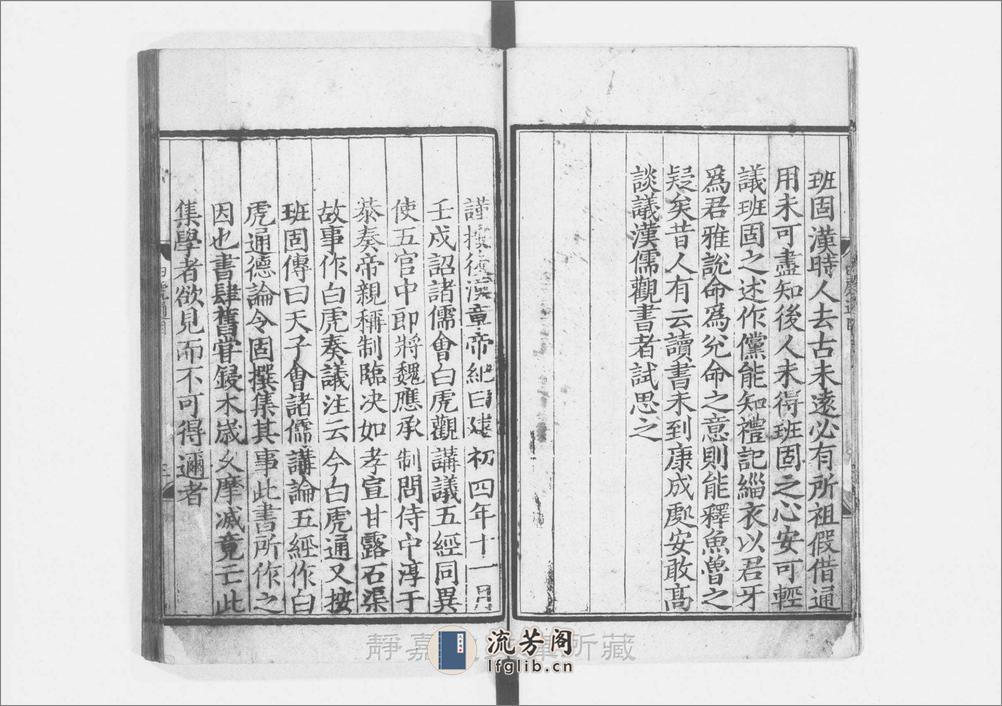 班固漢時人去古未遠必有所祖假借通
用未可盡知後人未得班固之心安可輕
議班固之述作儻能知禮記緇衣以君牙
爲君雅說命爲兊命之意則能釋魚魯之
疑矣昔人有云讀書未到康成處安敢髙
談議漢儒觀書者試思之
謹按後漢章帝紀曰建初四年十一月
壬戍詔諸儒會白虎觀講議五經同異
使五官中郎將魏應承制問侍中淳于
㳟奏帝親稱制臨决如孝宣甘露石渠
故事作白虎奏議注云今白虎通又按
班固傳曰天子會諸儒講論五經作白
虎通德論令固撰集其事此書所作之
因也書肆舊嘗鋟木歲久摩滅竟亡此
集學者欲見而不可得邇者
靜嘉 所藏
流芳阁
lfglib.cn